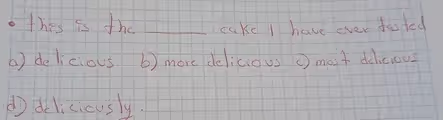 • this is the ______ cake I have ever tested
a) delicious b) more delicious c) most delicious
d) deliciously.